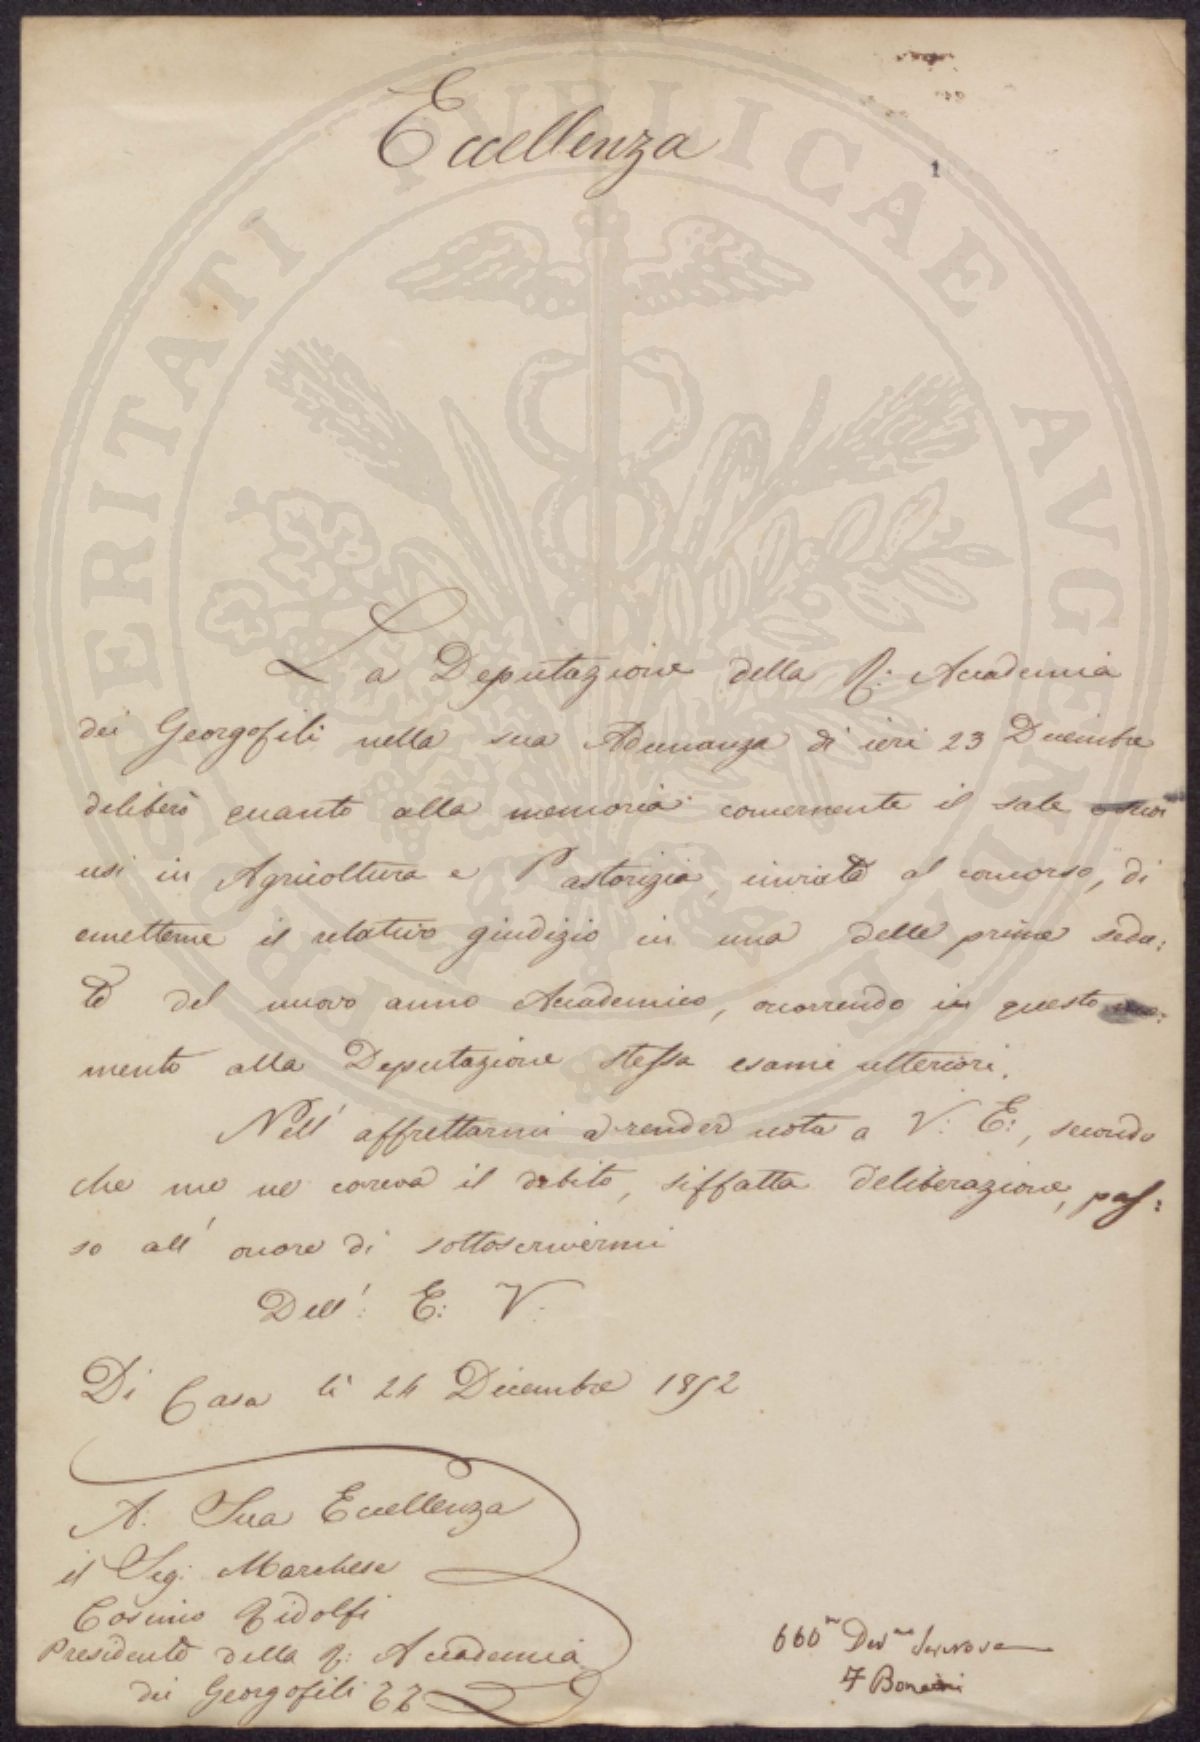 PROSPERITATI PUBLICAE AVGENDAE
Eccellenza
1
La Deputazione della R: Accademia
dei Georgofili nella sua Adunanza di ieri 23 Decembre
deliberò quanto alla memoria concernente il sale e suoi
usi in Agricoltura e Pastorizia, inviata al concorso, di
emetterne il relativo giudizio in una delle prime sedu:
te del nuovo anno Accademico, occorrendo in questo mo:
mento alla Deputazione stessa esami ulteriori.
Nell' affrettarmi a render nota a V: E:, secondo
che me ne correva il debito, siffatta deliberazione, pas:
so all' onore di sottoscrivermi
Dell': E: V:
Di Casa li 24 Dicembre 1852
A: Sua Eccellenza
il Sig: Marchese
Cosimo Ridolfi
Presidente della R: Accademia
dei Georgofili
Dev.mo Servitore
F Bonaini